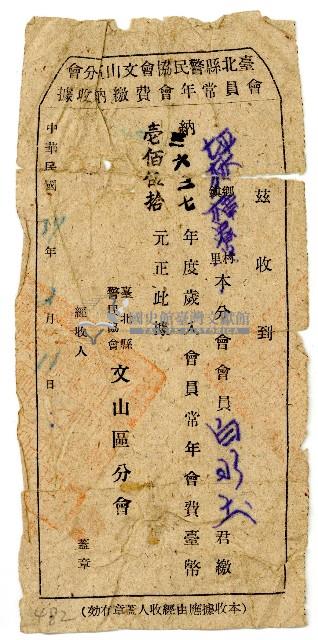 臺北縣警民協會文山區分會
會員常年會費繳納收據
茲收到
鄉鎮
村里
本分會會員白水土君繳
納
年度歲入會員常年會費臺幣
壹佰伍拾元正此據
臺北縣警民協會文山區分會
經收人
蓋章
中華民國
年
月11日
(本收據應由經收人蓋章有効)
482
國史館臺灣文獻館